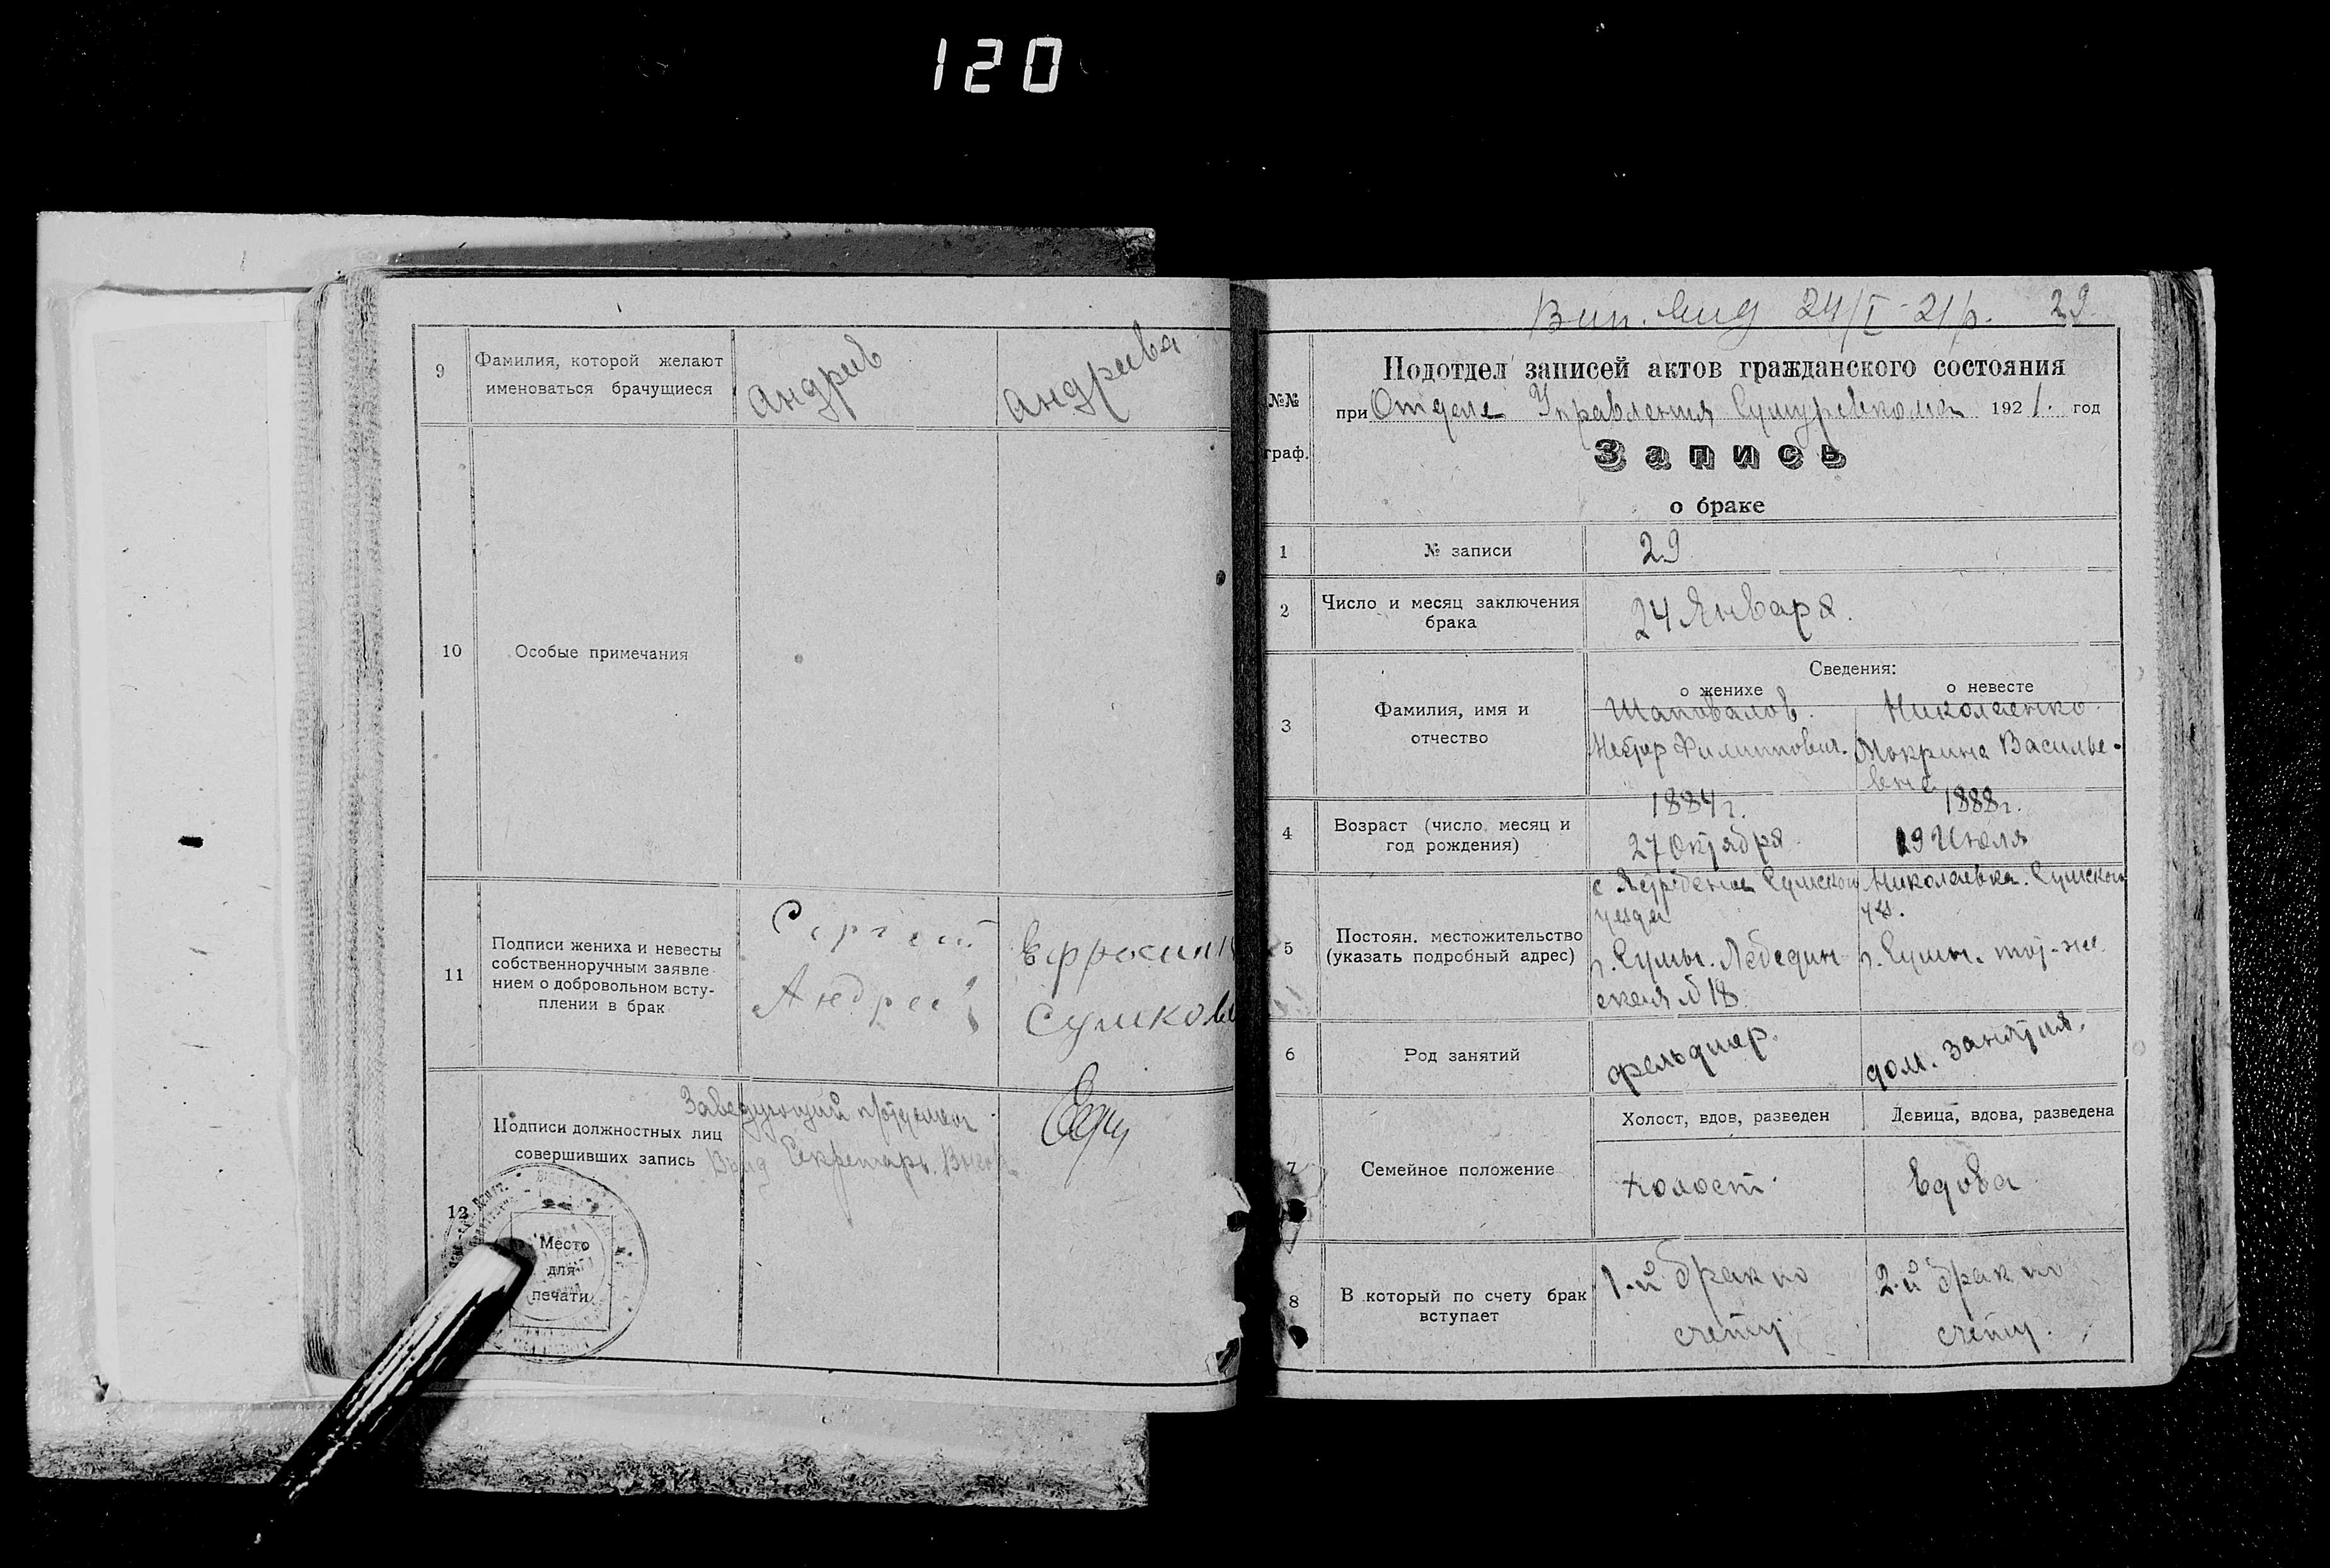 120
9
Фамилия, которой желают
именоваться брачущиеся
Андреев
Андреева
10
Особые примечания
11
Подписи жениха и невесты
собственноручным заявле-
нием о добровольном всту-
плении в брак
Сергей
Андреев
Ефросиния
Сушкова
12
Подписи должностных лиц
совершивших запись
Заведующий п/отделом
Секретарь
Место
для
печати
Вып. 24/I-21 р. 29
№№
граф.
Подотдел записей актов гражданского состояния
при Отделе Управления Сумуревкома 1921. год
Запись
о браке
1
№ записи
29
2
Число и месяц заключения
брака
24 Января.
Сведения:
о женихе
о невесте
3
Фамилия, имя и
отчество
Шаповалов.
Нестор Филиппович.
Николаенко
Мокрина Василье-
вна
4
Возраст (число, месяц и
год рождения)
1884 г.
27 Октября
1888 г.
19 Июля
5
Постоян. местожительство
(указать подробный адрес)
с. Сумского
уезда
г. Сумы. Лебедин-
ская № 18.
Николаевка. Сумского
уез.
г. Сумы. той-же
6
Род занятий
фельдшер.
дом. занятия.
7
Семейное положение
Холост, вдов, разведен
Девица, вдова, разведена
холост.
вдова
8
В который по счету брак
вступает
1-й брак по
счету
2-й брак по
счету.